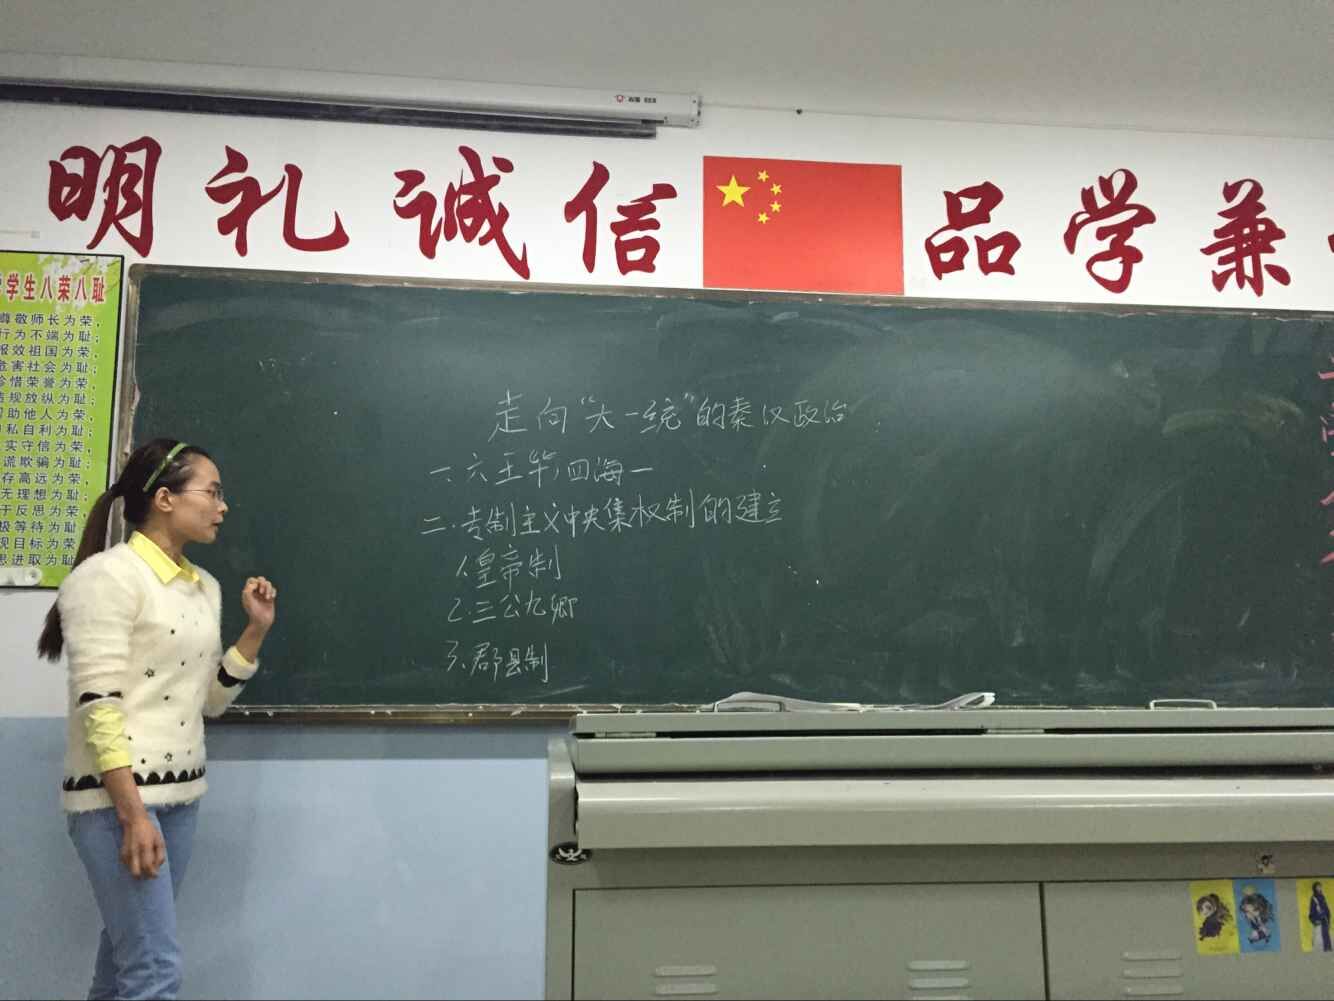 明礼诚信 品学兼
学生八荣八耻
尊敬师长为荣,
行为不端为耻;
报效祖国为荣,
危害社会为耻;
珍惜荣誉为荣,
违规放纵为耻;
帮助他人为荣,
自私自利为耻;
实守信为荣,
谎欺骗为耻;
存高远为荣,
无理想为耻;
于反思为荣,
极等待为耻;
现目标为荣,
思进取为耻
走向“大一统”的秦汉政治
一、六王毕,四海一
二、专制主义中央集权制的建立
1、皇帝制
2、三公九卿
3、郡县制